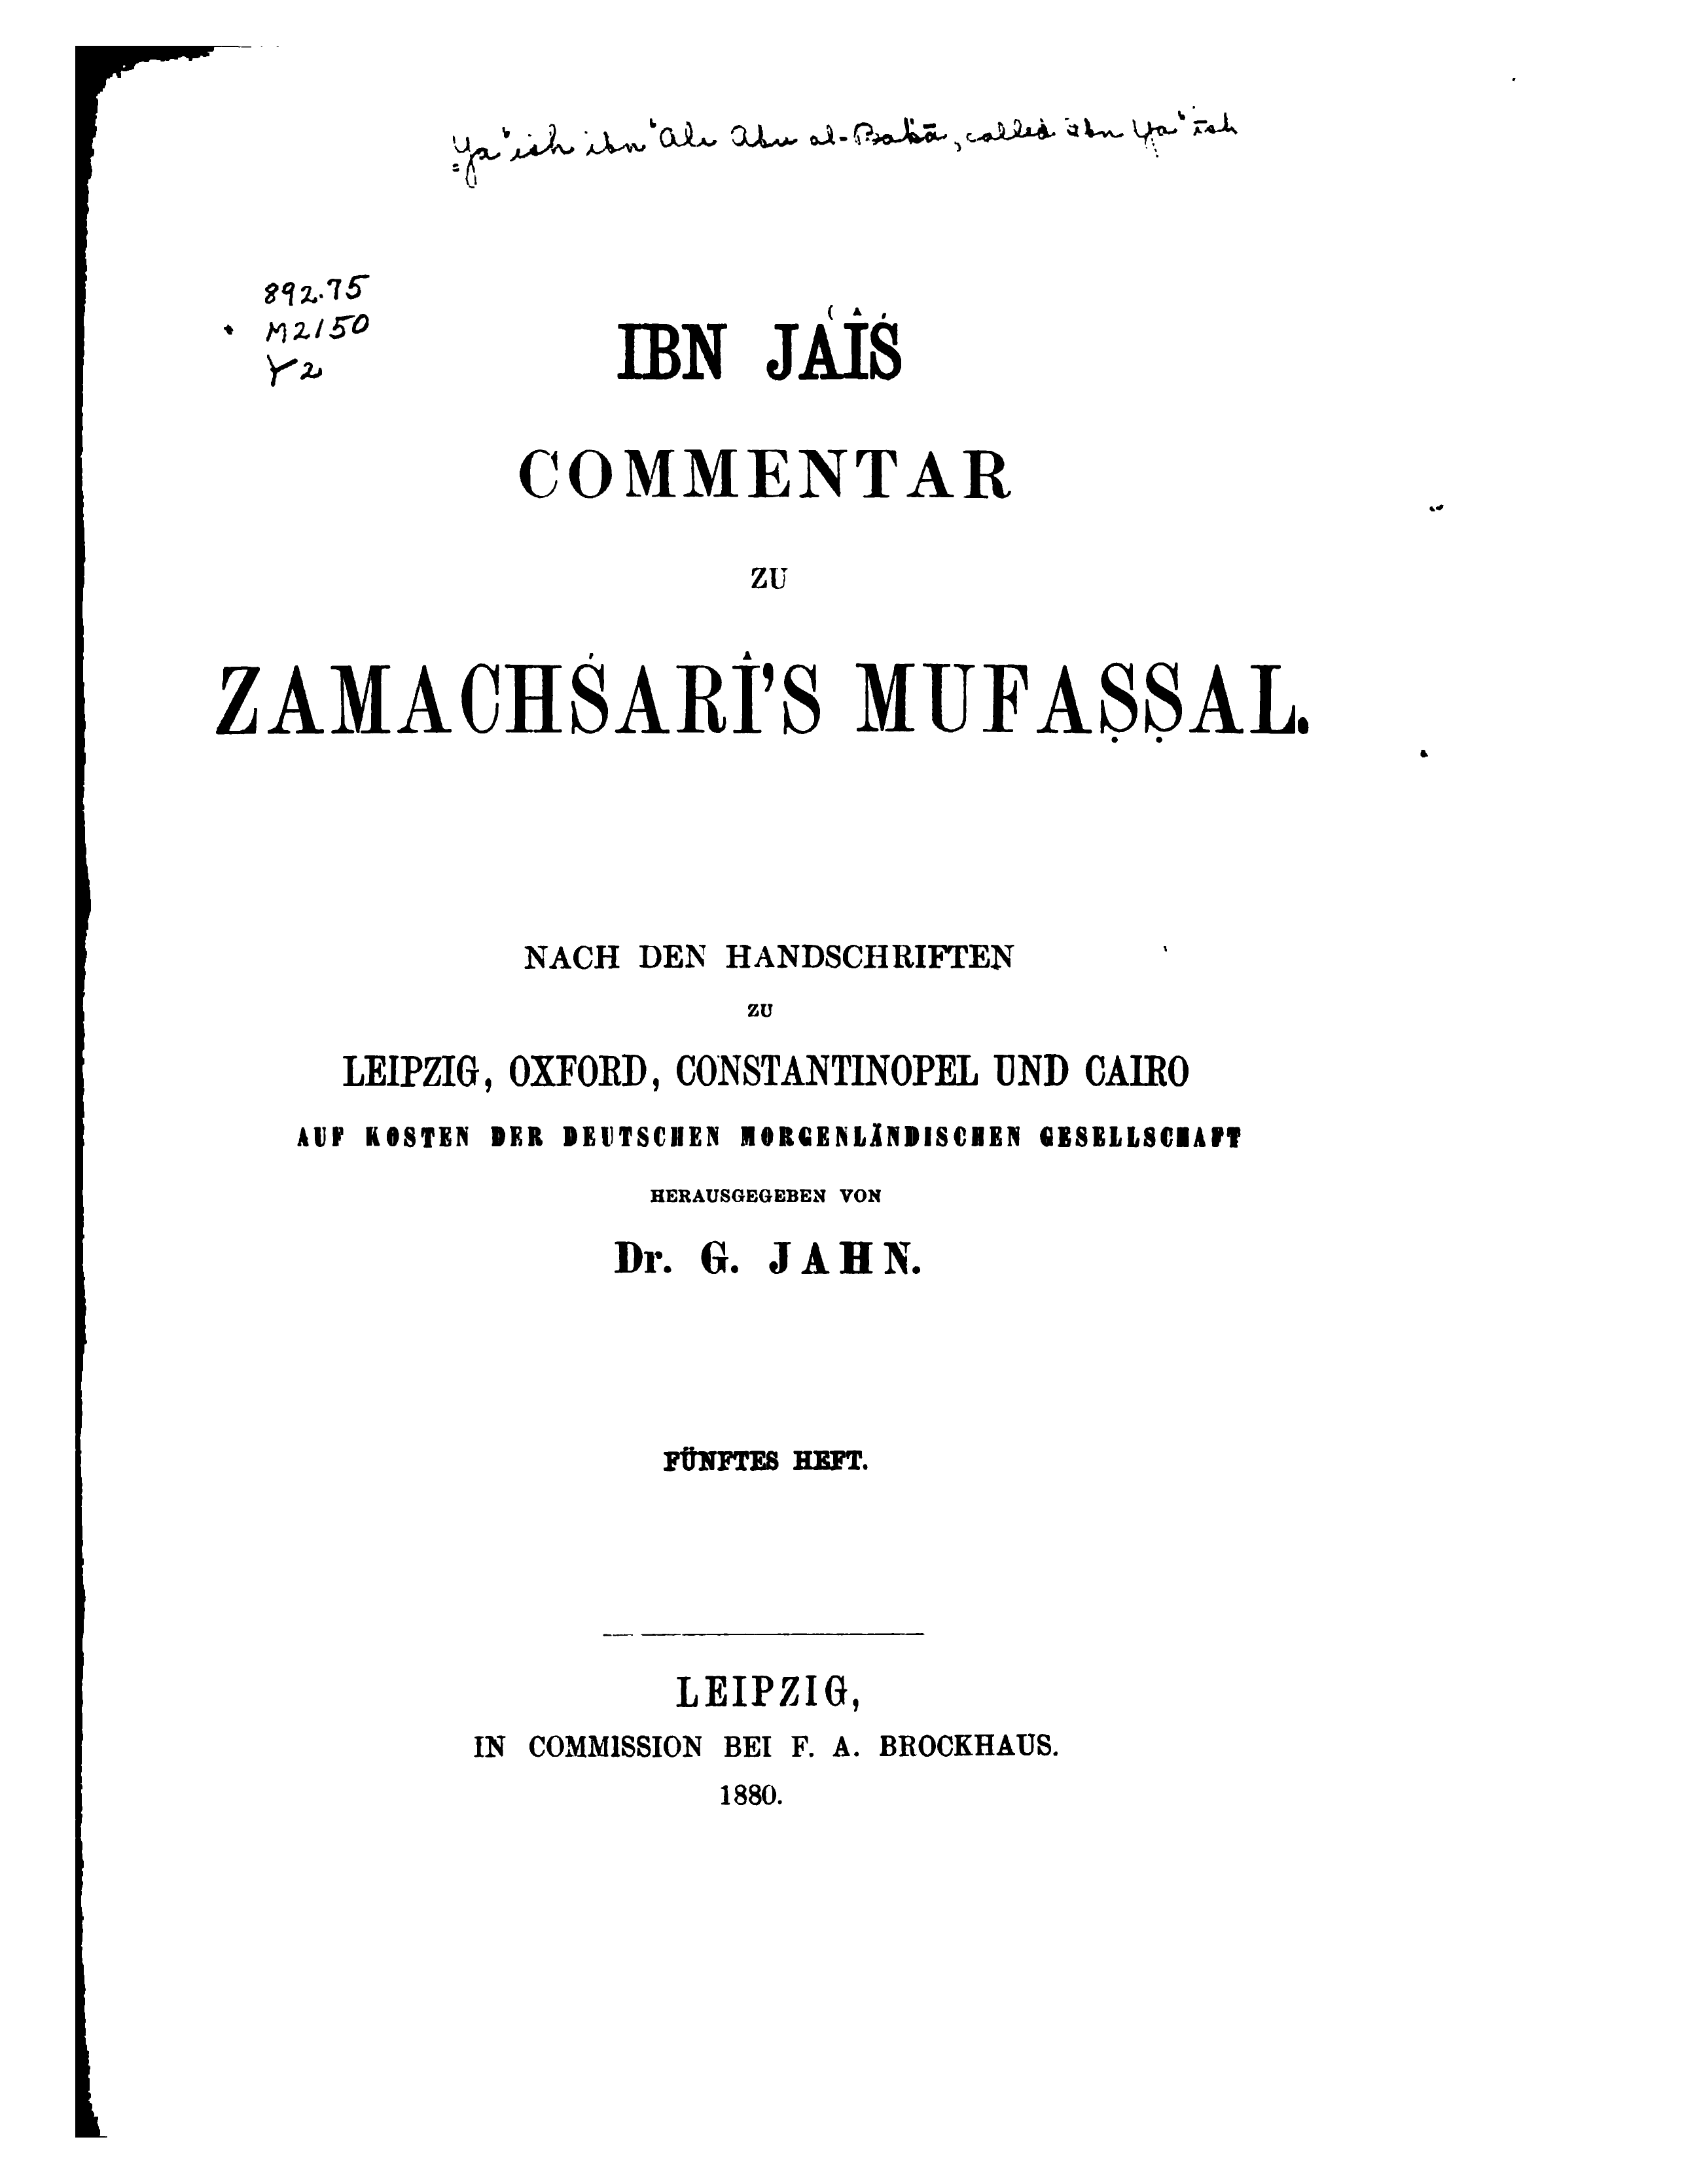 Ya‘ish ibn ‘Ali Abu al-Baḳā, called ibn Ya‘īsh
892.75
M2150
Y2
IBN JAʿÎŚ
COMMENTAR
ZU
ZAMACHŚARÎ'S MUFAṢṢAL.
NACH DEN HANDSCHRIFTEN
ZU
LEIPZIG, OXFORD, CONSTANTINOPEL UND CAIRO
AUF KOSTEN DER DEUTSCHEN MORGENLÄNDISCHEN GESELLSCHAFT
HERAUSGEGEBEN VON
Dr. G. JAHN.
FÜNFTES HEFT.
LEIPZIG,
IN COMMISSION BEI F. A. BROCKHAUS.
1880.